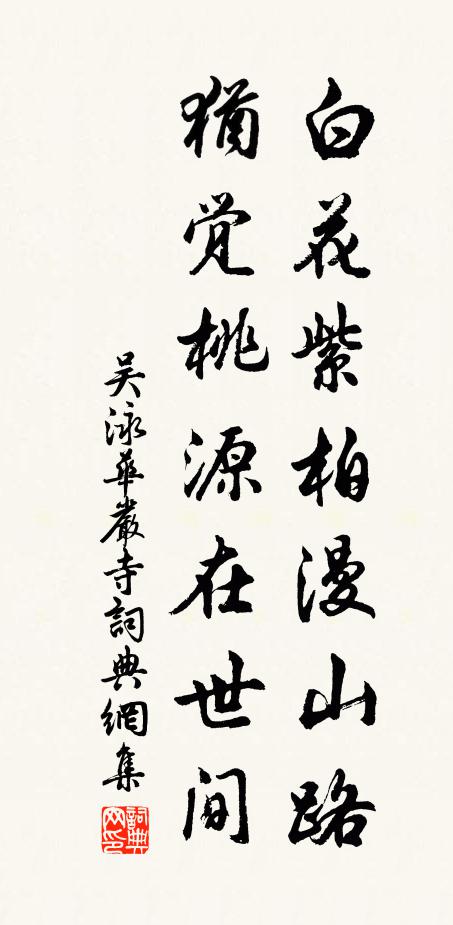 白花紫柏漫山路
犹觉桃源在世间
吴泳华严寺詞典網集
詞典网印